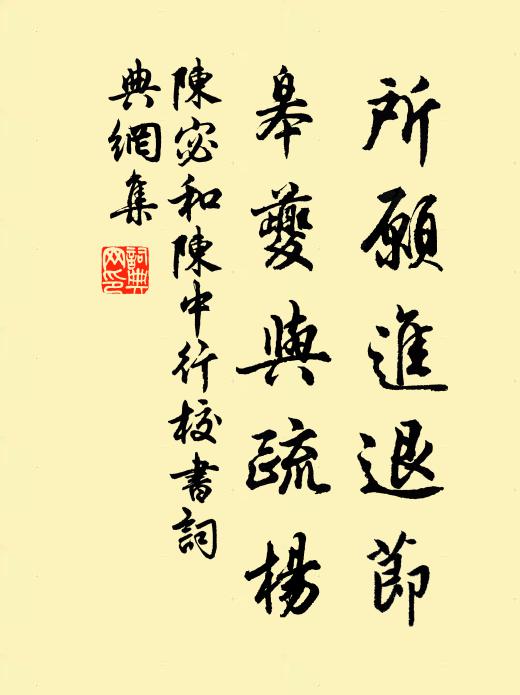 所願進退節
皋夔與疏楊
陳宓和陳中行校書詞
典網集
詞典
网印